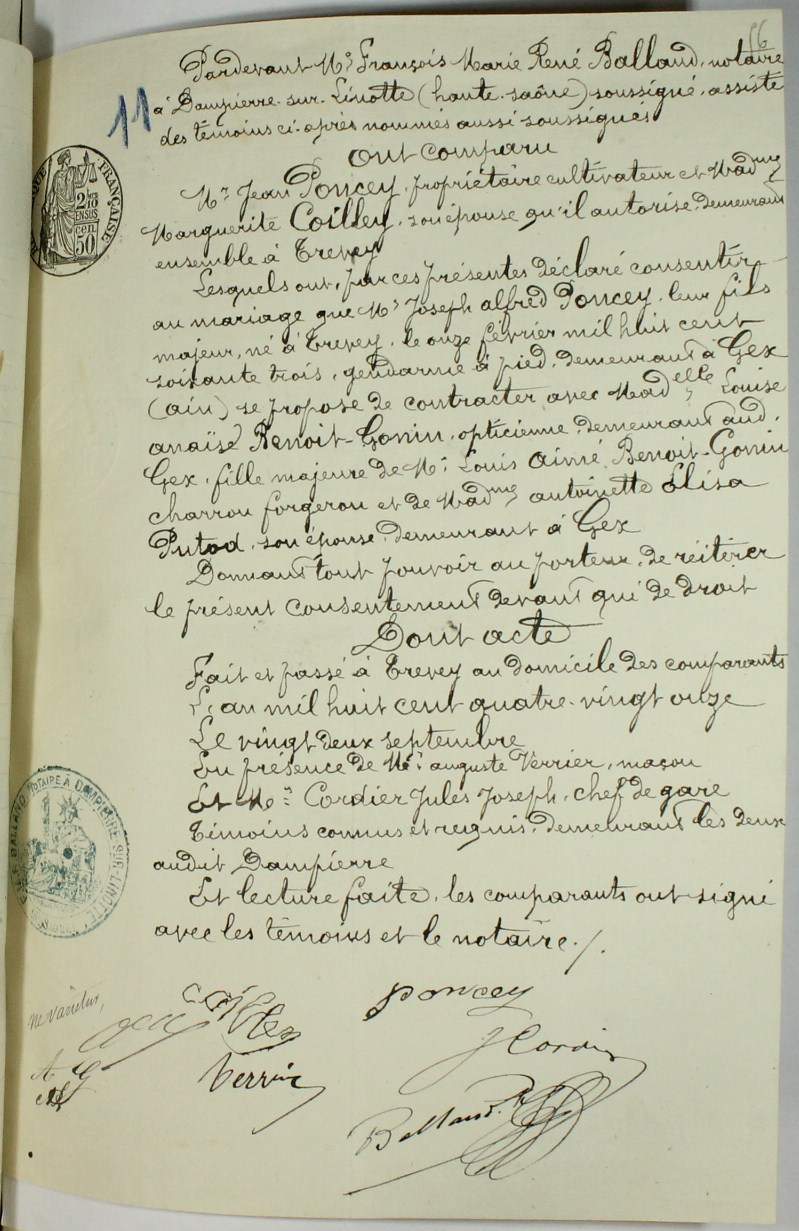 56
Pardevant Me François Marie René Balland, notaire
11
à Dampierre-sur-Linotte (haute-saône) soussigné, assisté
des témoins ci-après nommés aussi soussignés
Ont comparu
Mr Jean Poncey, propriétaire cultivateur et Madme
Marguerite Coilley, son épouse qu'il autorise, demeurant
ensemble à Trevey
Lesquels ont, par ces présentes déclaré consentir
au mariage que Mr Joseph alfred Poncey, leur fils
majeur, né à Trevey, le onze février mil huit cent
soixante trois, gendarme à pied, demeurant à Gex
(ain) se propose de contracter avec Madelle Louise
anaïse Benoit-Gonin, opticienne, demeurant aud.
Gex, fille majeure de Mr Louis Aimé Benoit-Gonin
charron forgeron et de Madme antoinette Elisa
Putod, son épouse, demeurant à Gex
Donnant tout pouvoir au porteur, de réitérer
le présent consentement devant qui de droit
Dont acte
Fait et passé à Trevey au domicile des comparants
L'an mil huit cent quatre-vingt onze
Le vingt deux septembre
En présence de Mr auguste Verrier, maçon
Et Mr Cordier Jules Joseph, chef de gare
Témoins connus et requis, demeurant les deux
audit Dampierre
Et lecture faite, les comparants ont signé
avec les témoins et le notaire./.
FRANÇAISE
2/10
EN SUS
50 cen
BALLAND NOTAIRE A DAMPIERRE-SUR-LINOTTE
Ne varietur,
Coilley
Poncey
J Cordier
Verrier
A G
Balland